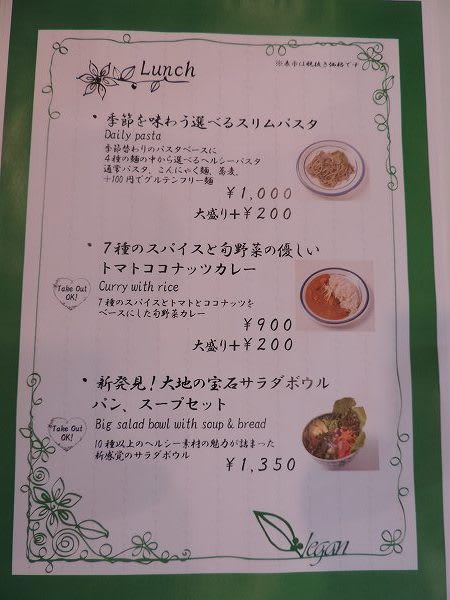 Lunch
※表示は税抜き価格です
・季節を味わう選べるスリムパスタ
Daily pasta
季節替わりのパスタベースに
4種の麺の中から選べるヘルシーパスタ
通常パスタ、こんにゃく麺、蕎麦、
+100円でグルテンフリー麺
¥1,000
大盛り+¥200
・7種のスパイスと旬野菜の優しい
トマトココナッツカレー
Take Out
OK!
Curry with rice
7種のスパイスとトマトとココナッツを
ベースにした旬野菜カレー
¥900
大盛り+¥200
・新発見!大地の宝石サラダボウル
パン、スープセット
Take Out
OK!
Big salad bowl with soup & bread
10種以上のヘルシー素材の魅力が詰まった
新感覚のサラダボウル
¥1,350
Vegan